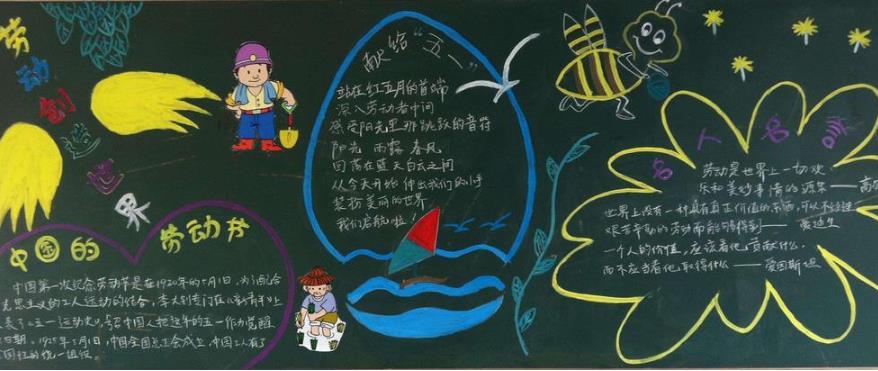 劳动创造世界
中国的劳动节
中国第一次纪念劳动节是在1920年的5月1日,为了配合
克思主义的工人运动的结合,李大钊专门在《新青年》上
表了"五一"运动史》,号召中国人把这年的五一作为觉醒
日期。1925年5月1日,中国全国总工会成立,中国工人有了
国性的统一组织。
献给"五一"
站在红五月的首端
深入劳动者中间
感受阳光里那跳跃的音符
阳光 雨露 春风
回荡在蓝天白云之间
从今天开始 伸出我们的小手
装扮美丽的世界
我们启航啦!
名人名言
劳动是世界上一切欢
乐和美妙事情的源泉——高尔
世界上没有一种具有真正价值的东西,可以不经过
艰苦辛勤的劳动而能够得到——爱迪生
一个人的价值,应该看他贡献什么,
而不应当看他取得什么——爱因斯坦